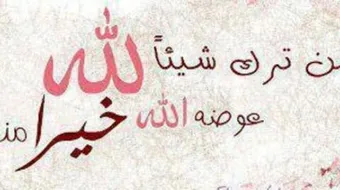 من ترك شيئاً لله
عوضه الله خيرا من